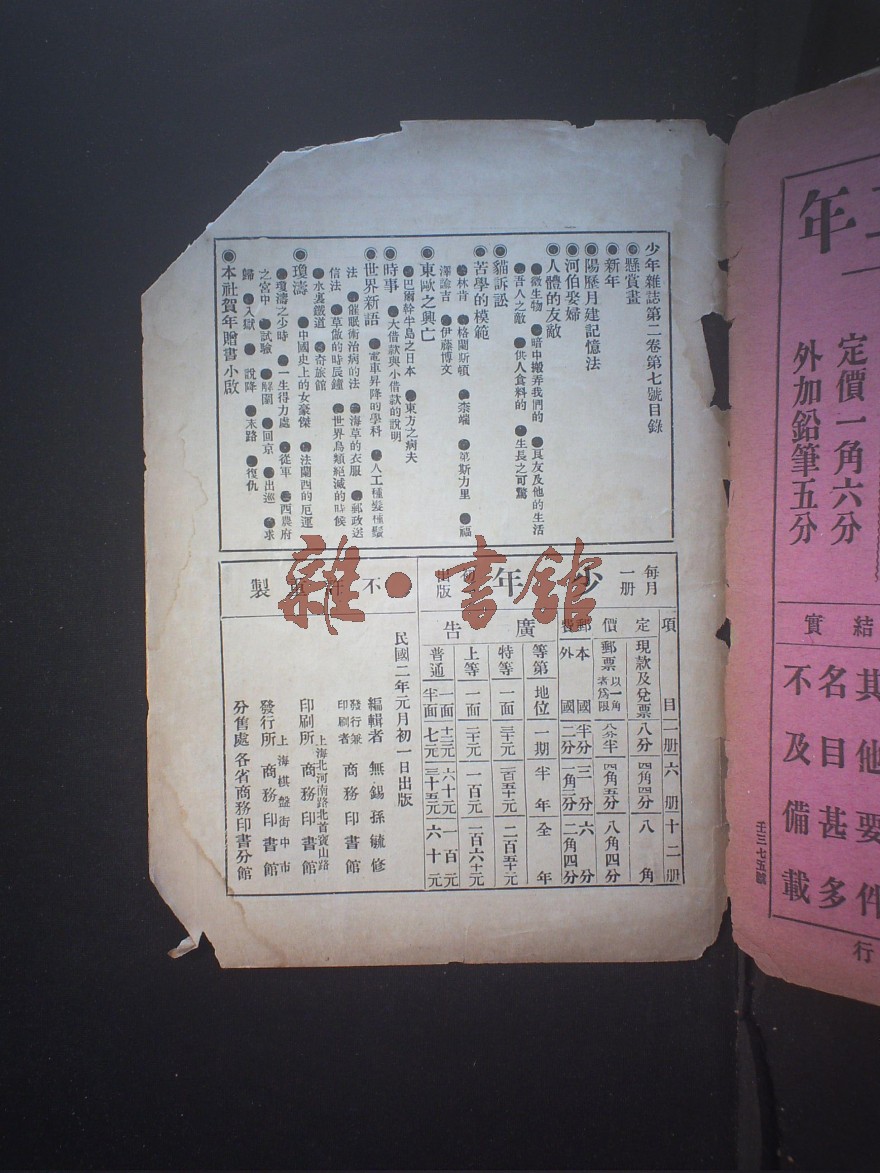 少年雜誌第二卷第七號目錄
◉懸賞畫
◉新年
◉陽歷月建記憶法
◉河伯娶婦
◉人體的友敵
●微生物 ●暗中搬弄我們的 ●良友及他的生活
●吾人之敵 ●供人食料的 ●生長之可驚
◉貓訴訟
◉苦學的模範
●林肯 ●格蘭斯頓 ●奈端 ●第斯力里 ●福
澤諭吉 ●伊藤博文
◉東歐之興亡
●巴爾幹半島之日本 ●東方之病夫
◉時事 ●大借款與小借款的說明
◉世界新語 ●電車昇降的學科 ●人工種髮種鬚
法 ●催眠術治病的法 ●海草的衣服 ●郵政送
信法 ●草做的時辰鐘 ●世界鳥類絕滅的時候
●水裏鐵道 ●奇旅館
◉瓊濤 ●中國史上的女豪傑 ●法蘭西的厄運
●瓊濤之少時 ●一生得力處 ●從軍 ●西農府
之宮中 ●試驗 ●解圍 ●回京 ●出巡 ●求
歸 ●入獄 ●說降 ●末路 ●復仇
◉本社賀年贈書小啟
每月一册
少年
初一出版
項目 一册 六册 十二册
定價 現款及兌票 八分 四角四分 八角
郵票以一角者為限 八分半 四角五分 八角四分
郵費 本國 半分 三分 六分
外國 二分 一角二分 二角四分
廣告
等第 地位 一期 半年 全年
特等 一面 三十元 一百五十元 二百五十元
上等 一面 二十元 一百元 一百六十元
普通 一面 十二元 六十元 一百元
半面 七元 三十五元 六十元
不許重製
民國二年元月初一日出版
編輯者 無錫孫毓修
發行兼印刷者 商務印書館
上海北河南路北首寶山路
印刷所 商務印書館
上海棋盤街中市
發行所 商務印書館
分售處 各省商務印書分館
雜·書館
年
定價一角六分
外加鉛筆五分
結實
其他要件
名目甚多
不及備載
壬三七五號
行